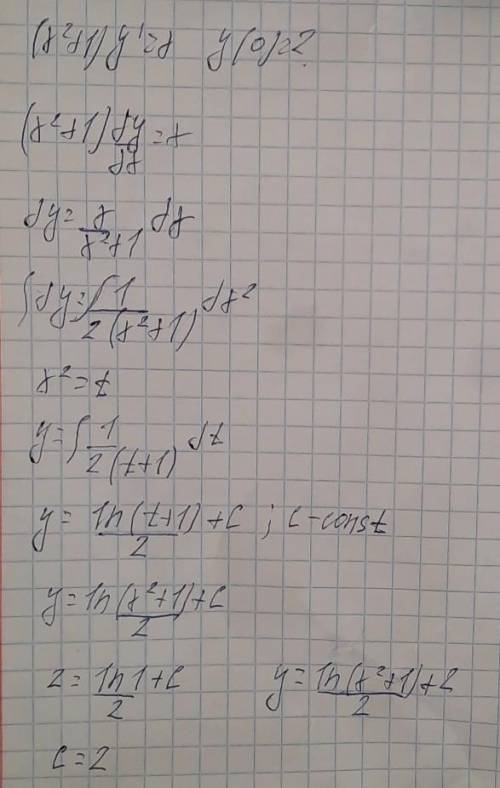 (x²+1)y'=x y(0)=2
(x²+1)dy/dx=x
dy=x/(x²+1) dx
∫dy=∫1/(2(x²+1)) dx²
x²=t
y=∫1/(2(t+1)) dt
y=ln(t+1)/2+C ; C-const
y=ln(x²+1)/2+C
2=ln1/2+C y=ln(x²+1)/2+2
C=2